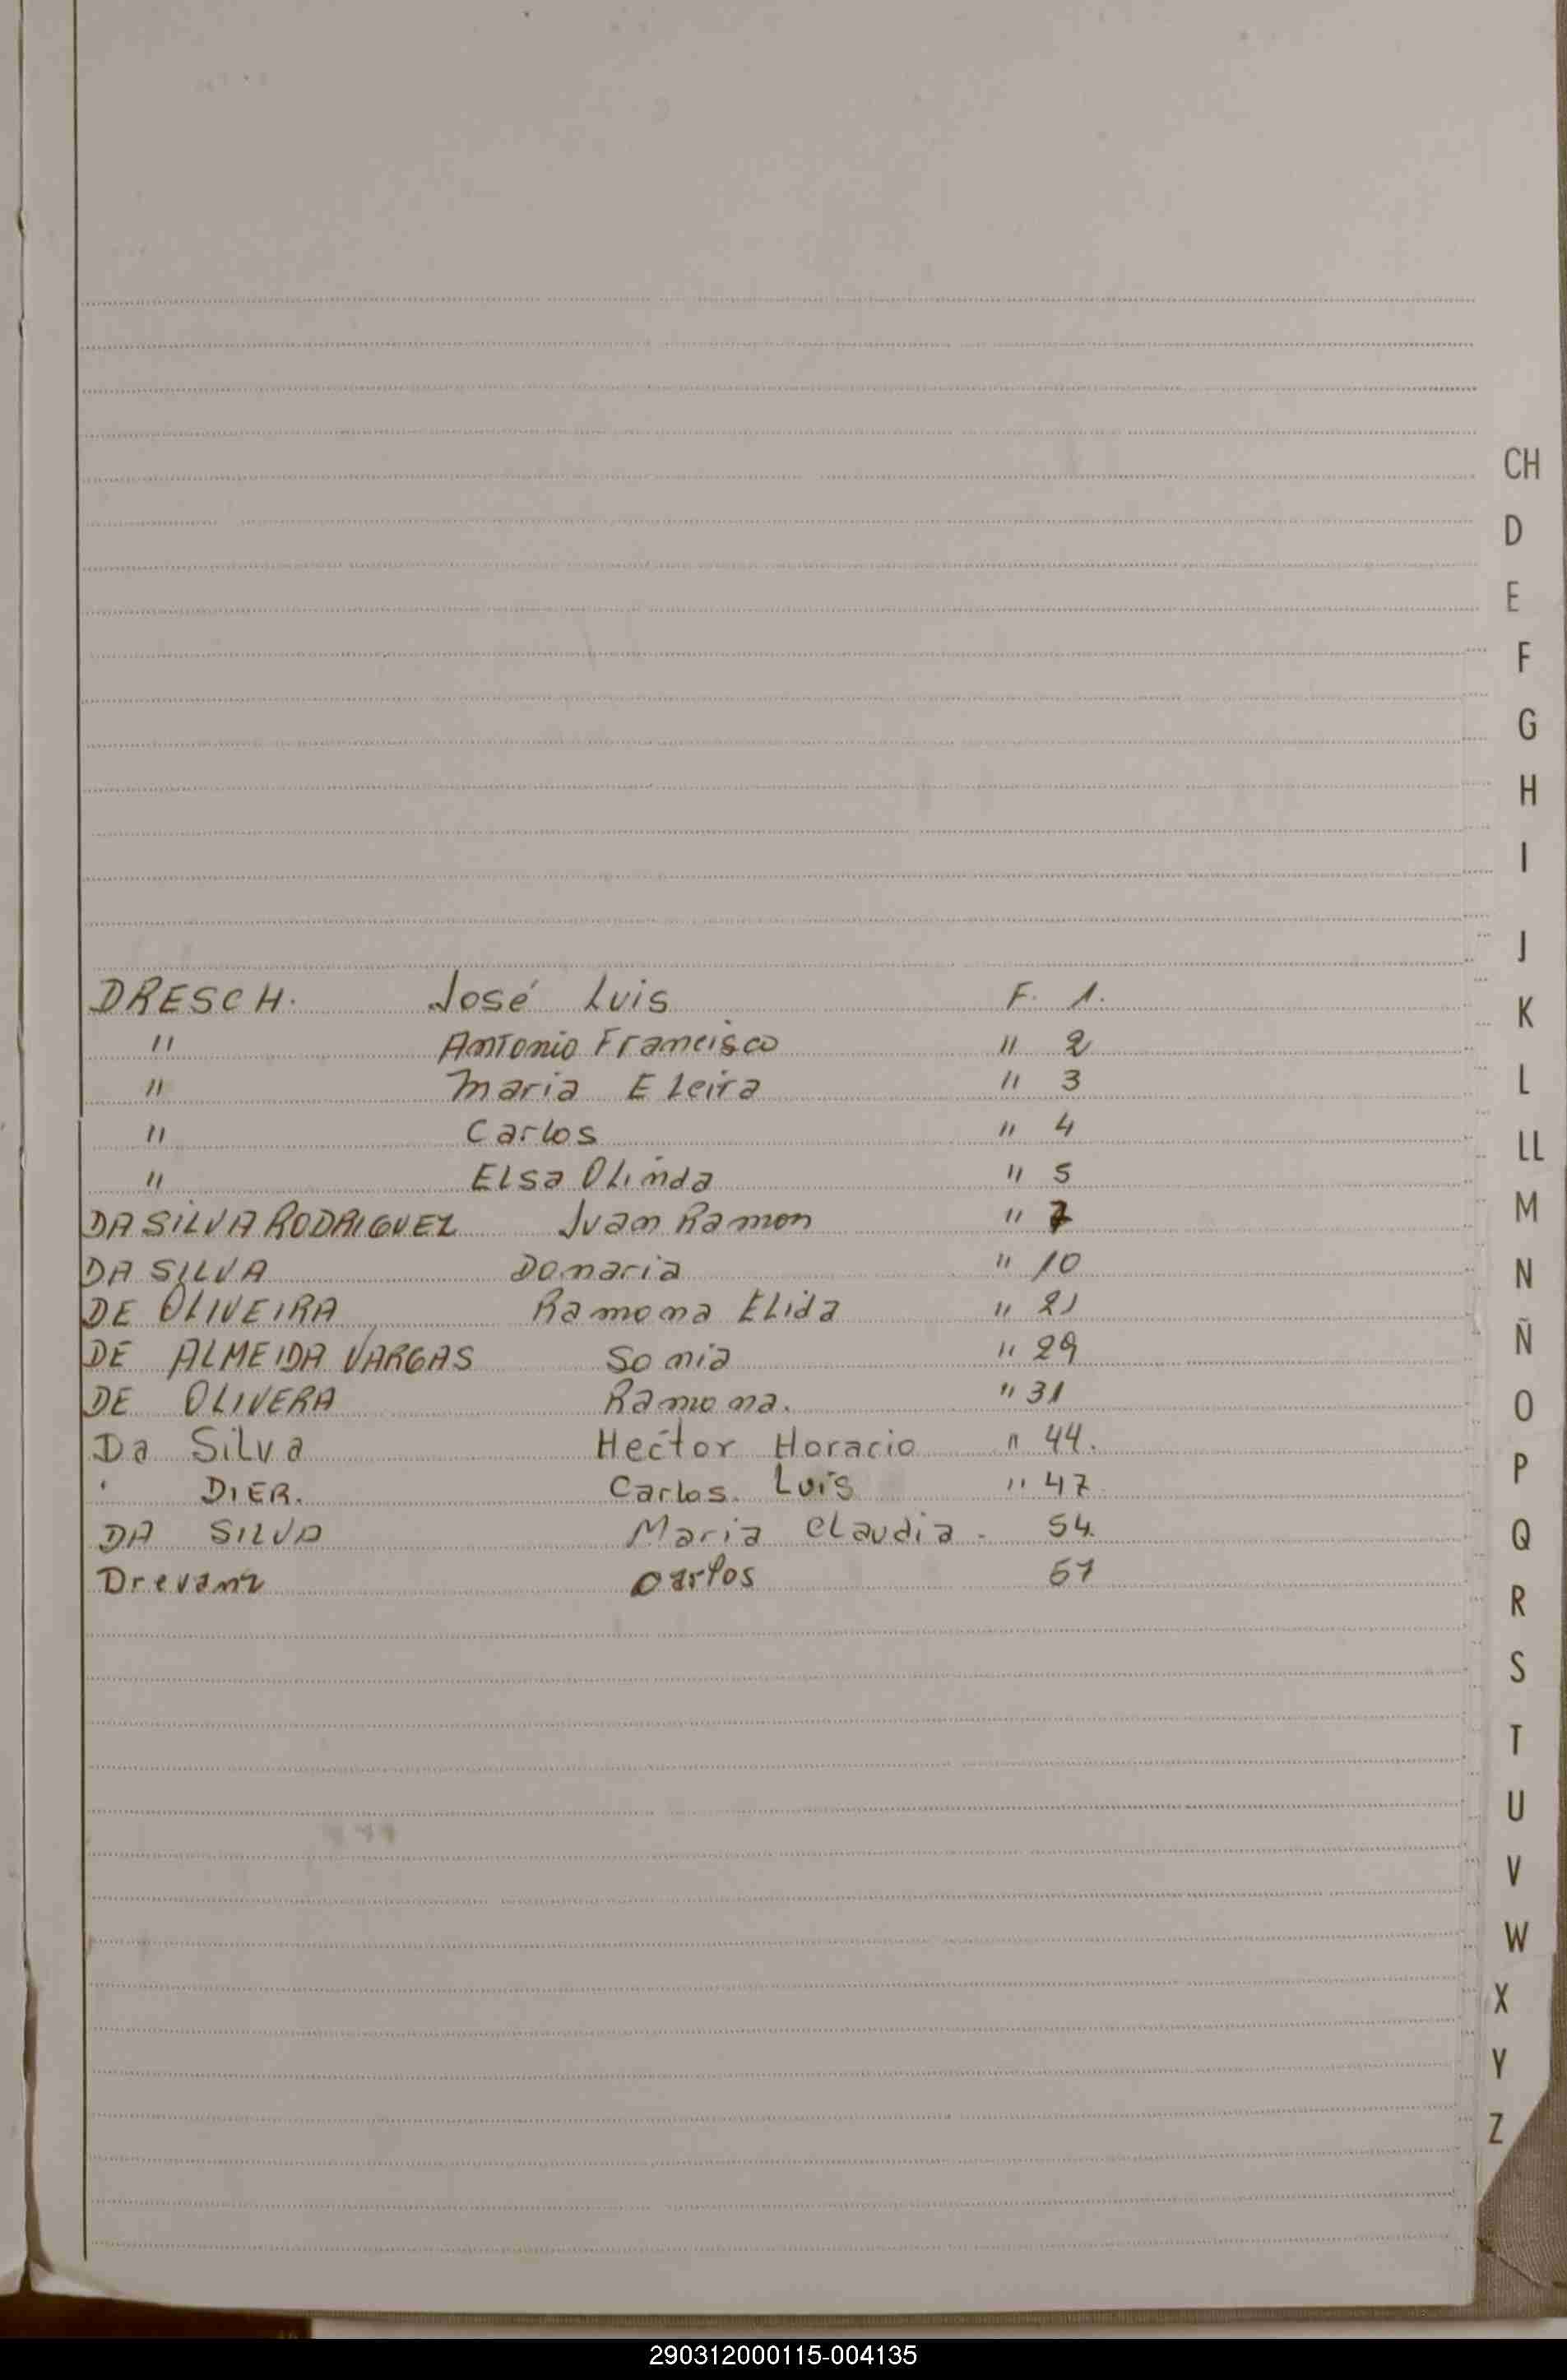 CH
D
E
F
G
H
I
J
K
L
LL
M
N
Ñ
O
P
Q
R
S
T
U
V
W
X
Y
Z
DRESCH. José Luis F. 1.
" Antonio Francisco " 2
" Maria Eleira " 3
" Carlos " 4
" Elsa Olinda " 5
DA SILVA RODRIGUEZ Juan Ramon " 7
DA SILVA Domaria " 10
DE OLIVEIRA Ramona Elida " 21
DE ALMEIDA VARGAS Sonia " 29
DE OLIVERA Ramona. " 31
Da Silva Hector Horacio " 44.
DIER. Carlos. Luis " 47
DA SILVA Maria Claudia - 54.
Drevanz Carlos
290312000115-004135